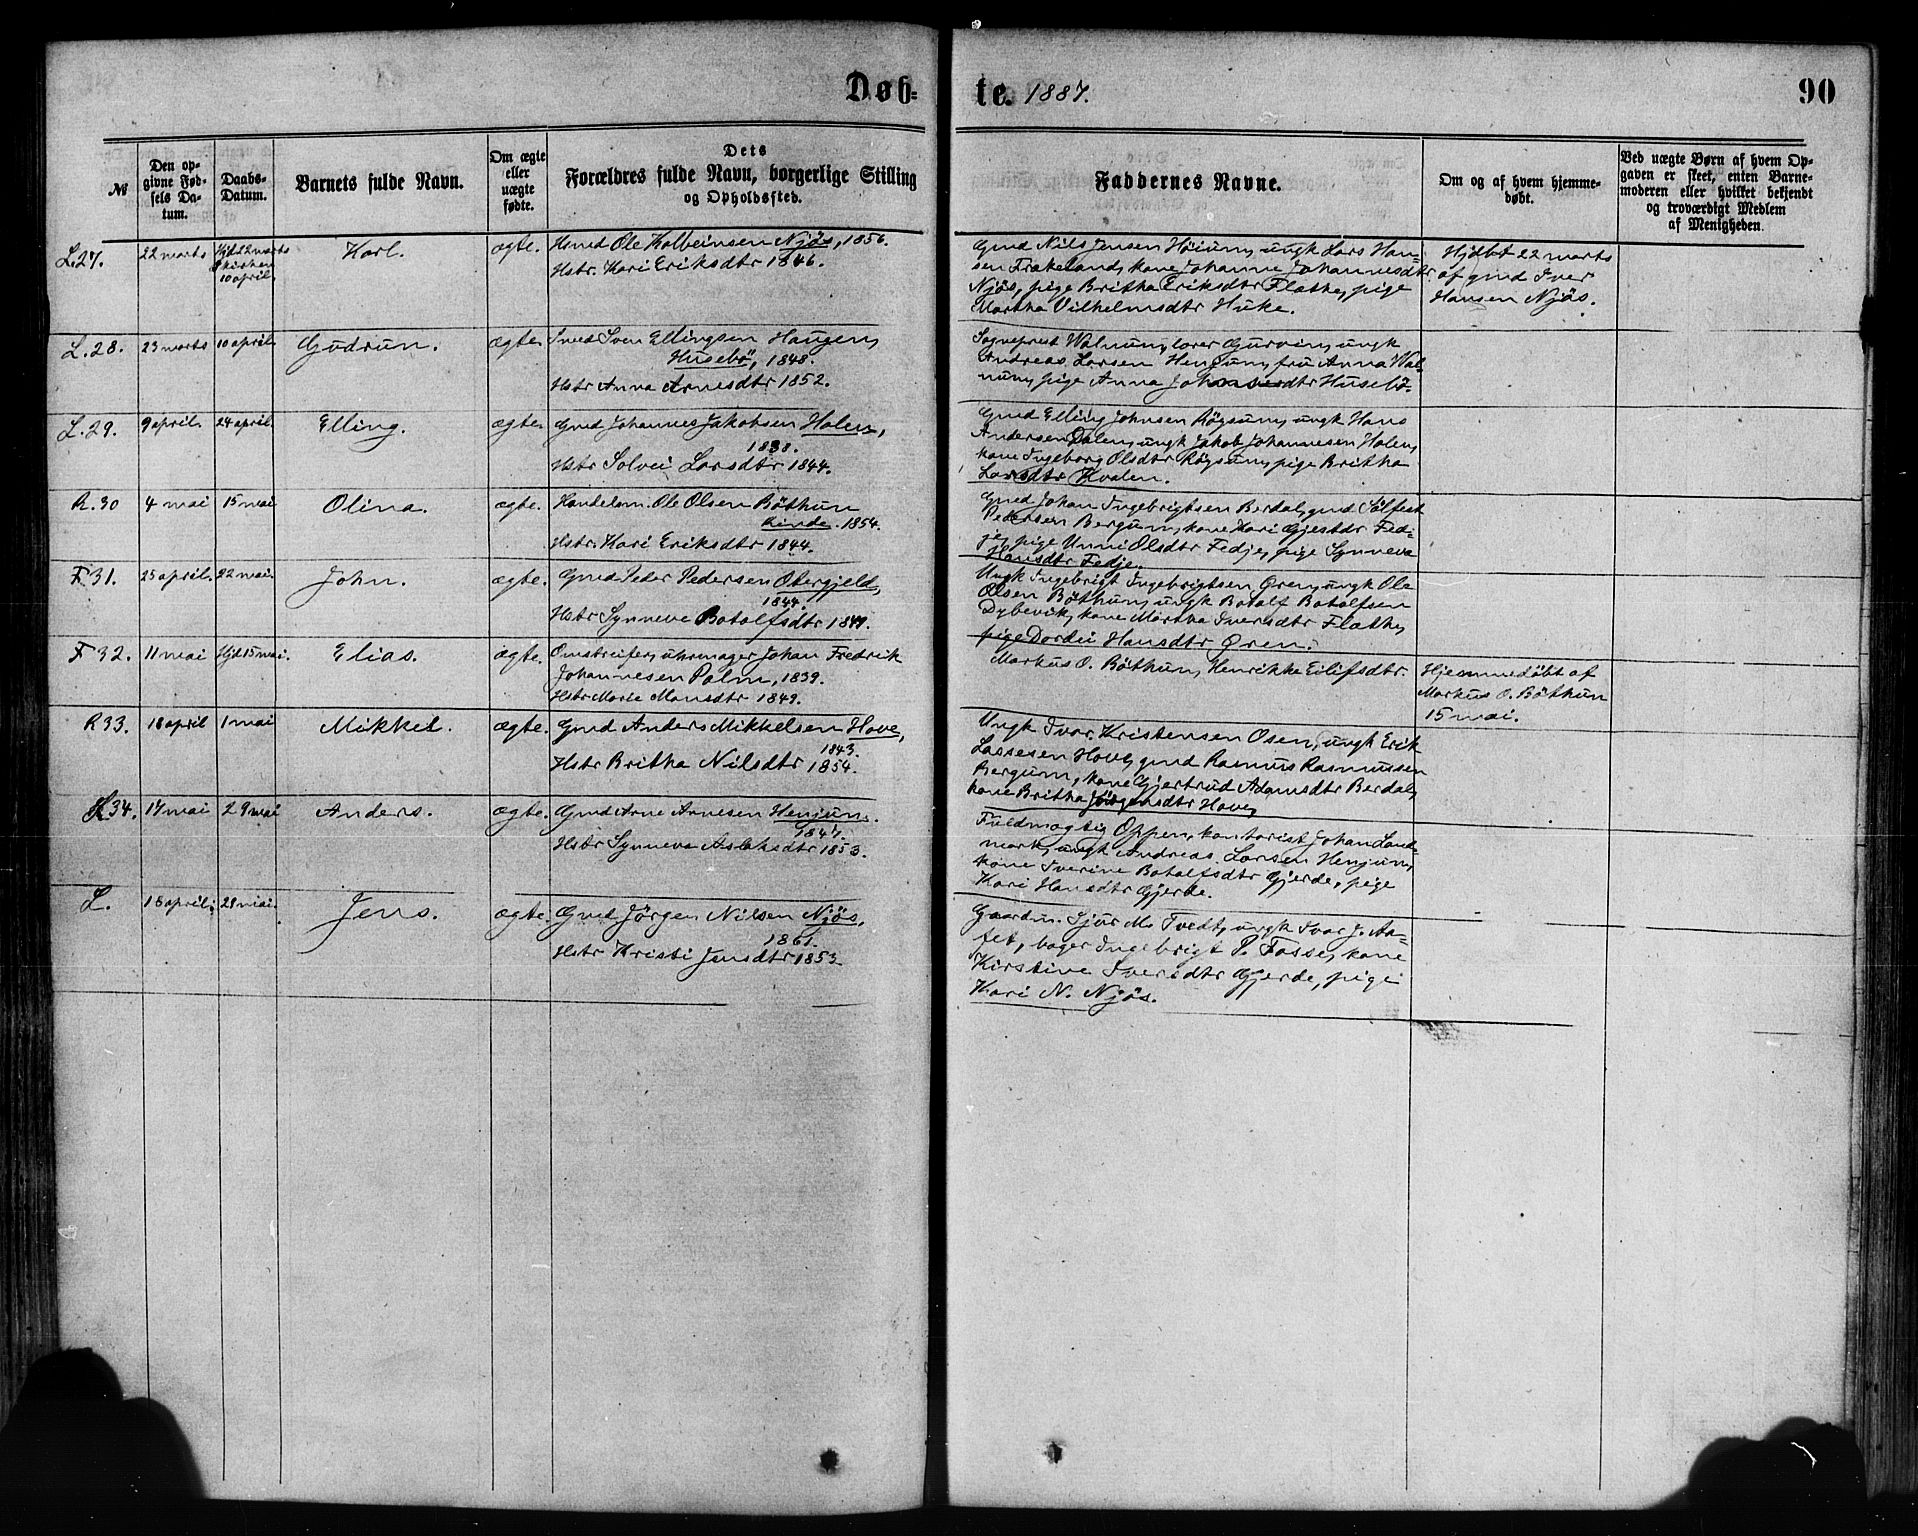 Døb-
te. 1887.
90
№
Den op-
givne Fød-
sels Da-
tum.
Daabs-
Datum.
Barnets fulde Navn.
Om ægte
eller
uægte
fødte.
Dets
Forældres fulde Navn, borgerlige Stilling
og Opholdssted.
Faddernes Navne.
Om og af hvem hjemme-
døbt.
Ved uægte Børn af hvem Op-
gaven er skeet, enten Barne-
moderen eller hvilket bekjendt
og troværdigt Medlem
af Menigheden.
L.27.
22 marts
Hjd 22 marts
kirken
10 april
Karl.
ægte.
Hsmd Ole Kolbeinsen Njøs, 1856.
Hstr. Kari Eriksdtr 1846.
Gmd Nils Jensen Høium, ungk Lars Han=
sen Frækeland, kone Johanne Johannesdtr
Njøs, pige Britha Eriksdtr Flæthe, pige
Martha Vilhelmsdtr Huke.
Hjdbt 22 marts
af gmd Iver
Hansen Njøs.
L.28.
23 marts
10 april
Gudrun.
ægte.
Smed Sven Ellingsen Haugen,
Husebö, 1848.
Hstr Anna Arnesdtr 1852.
Sogneprest Walnum, lærer Gurvin, ungk
Andreas Larsen Henjum, fru Anna Wal-
num, pige Anna Johansdtr Husebö.
L.29.
9 april.
24 april.
Elling.
ægte.
Gmd Johannes Jakobsen Holen,
1838.
Hstr Solvei Larsdtr 1844.
Gmd Elling Johnsen Røysum, ungk Hans
Andersen Dalen, ungk Jakob Johannesen Holen,
kone Ingeborg Olsdtr Røysum, pige Britha
Larsdtr Kvalen.
R.30
4 mai
15 mai
Olina.
ægte.
Handelsm. Ole Olsen Böthun
Rinde. 1854.
Hstr. Kari Eriksdtr 1844.
Gmd Johan Ingebrigtsen Berdal, gmd Sölfest
Pedersen Bergum, kone Kari Gjestdr Fed-
je, pige Unni Olsdtr Fedje, pige Synneva
Hansdtr Fedje.
F.31.
25 april.
22 mai.
John.
ægte.
Gmd Peder Pedersen Obergjeld,
1844.
Hstr Synneve Botolfsdtr 1847.
Ungk Ingebrigt Ingebrigtsen Øren, ungk Ole
Olsen Böthun, ungk Botolf Botolfsen
Dybevik, kone Martha Iversdtr Flæthe,
pige Dordei Hansdtr Øren.
F 32.
11 mai
Hjd 15 mai.
Elias.
ægte.
Omstreifer, uhrmager Johan Fredrik
Johannesen Palm, 1839.
Hstr Marie Monsdtr 1849.
Markus O. Böthun, Henrikke Eilifsdtr.
Hjemmedöbt af
Markus O. Böthun
15 mai.
R33.
18 april
1 mai
Mikkel.
ægte.
Gmd Anders Mikkelsen Hove,
1843.
Hstr Britha Nilsdtr 1854.
Ungk Ivar Kristensen Osen, ungk Erik
Lassesen Hove, gmd Rasmus Rasmussen
Bergum, kone Gjertrud Adamsdtr Berdal,
kone Britha Jørgensdtr Hove,
34.
17 mai
29 mai
Anders.
ægte.
Gmd Arne Arnesen Henjum.
1847.
Hstr Synneva Aslaksdtr 1853.
Fuldmægtig Oppen, kontorist Johan Land-
mark, ungk Andreas Larsen Henjum,
kone Iverine Botolfsdtr Gjerde, pige
Kari Hansdtr Gjerde.
L.
18 april.
29 mai.
Jens.
ægte.
Gmd Jörgen Nilsen Njös,
1861.
Hstr Kristi Jensdtr 1853
Gaardm. Sjur M. Tvedt, ungk Ivar J. Aa=
fet, bager Ingebrigt P. Fosse, kone
Kirstine Iversdtr Gjerde, pige
Kari N. Njös.